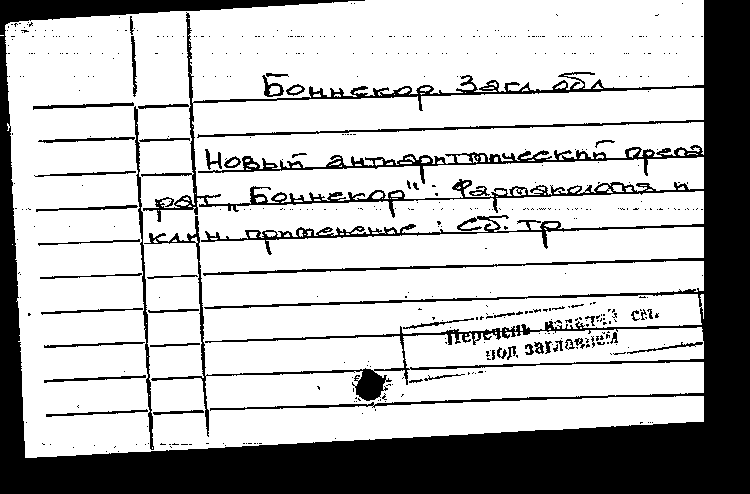 Боннекор. Загл. обл.
Новый антиаритмический препа
рат „Боннекор": Фармакология и
клин. применение : Сб. тр.
Перечень изданий см.
под заглавием